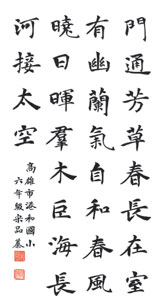 門通芳草春長在室
有幽蘭氣自和春風
曉日暉羣木臣海長
河接太空
高雄市港和國小
六年級宋品蓁